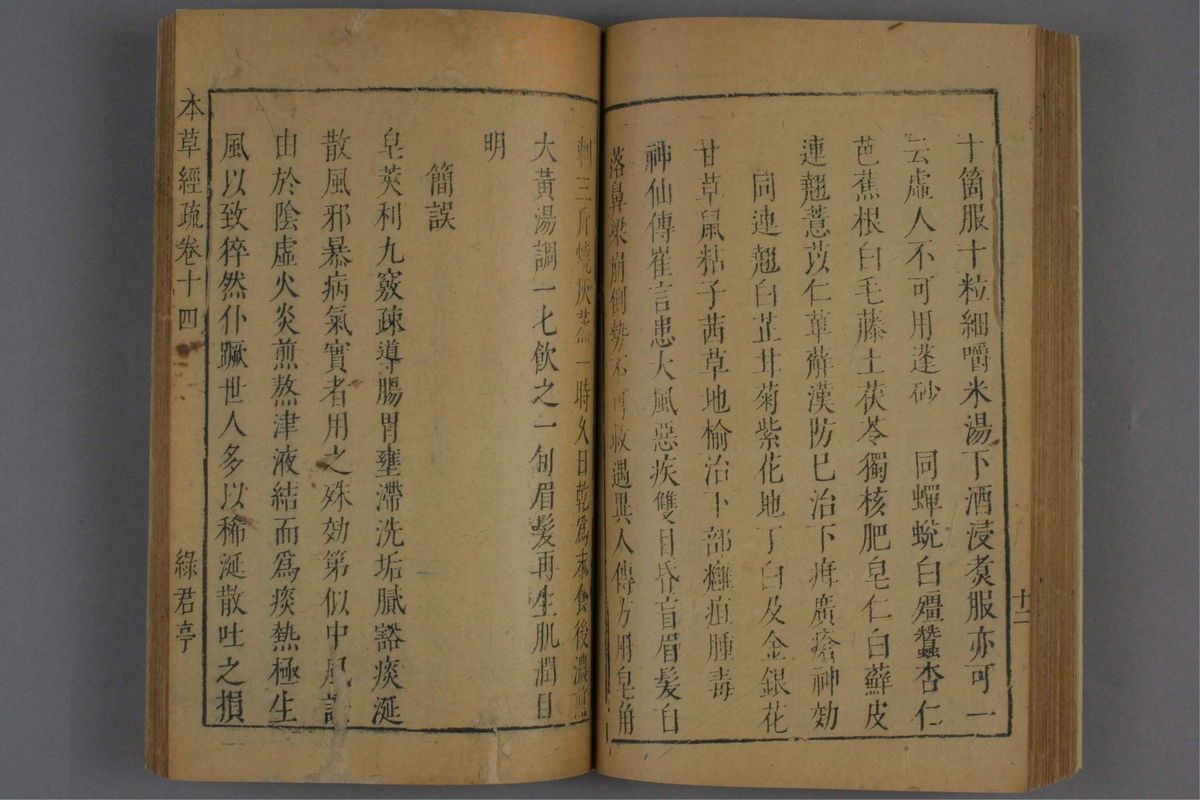 十箇服十粒細嚼米湯下酒浸煑服亦可一
云虛人不可用蓬砂　同蟬蛻白殭蠶杏仁
芭蕉根白毛藤土茯苓獨核肥皂仁白蘚皮
連翹薏苡仁萆薢漢防巳治下疳廣瘡神効
同連翹白芷甘菊紫花地丁白及金銀花
甘草鼠粘子茜草地榆治下部癰疽腫毒
神仙傳崔言患大風惡疾雙目昏盲眉髮自
落鼻梁崩倒勢不可救遇異人傳方用皂角
十二
刺三斤燒灰蒸一時久日乾爲末食後濃煎
大黃湯調一七飲之一旬眉髮再生肌潤目
明
簡誤
皂莢利九竅疎導腸胃壅滯洗垢膩豁痰涎
散風邪暴病氣實者用之殊効第似中風證
由於陰虛火炎煎熬津液結而爲痰熱極生
風以致猝然仆蹶世人多以稀涎散吐之損
本草經疏卷十四　綠君亭